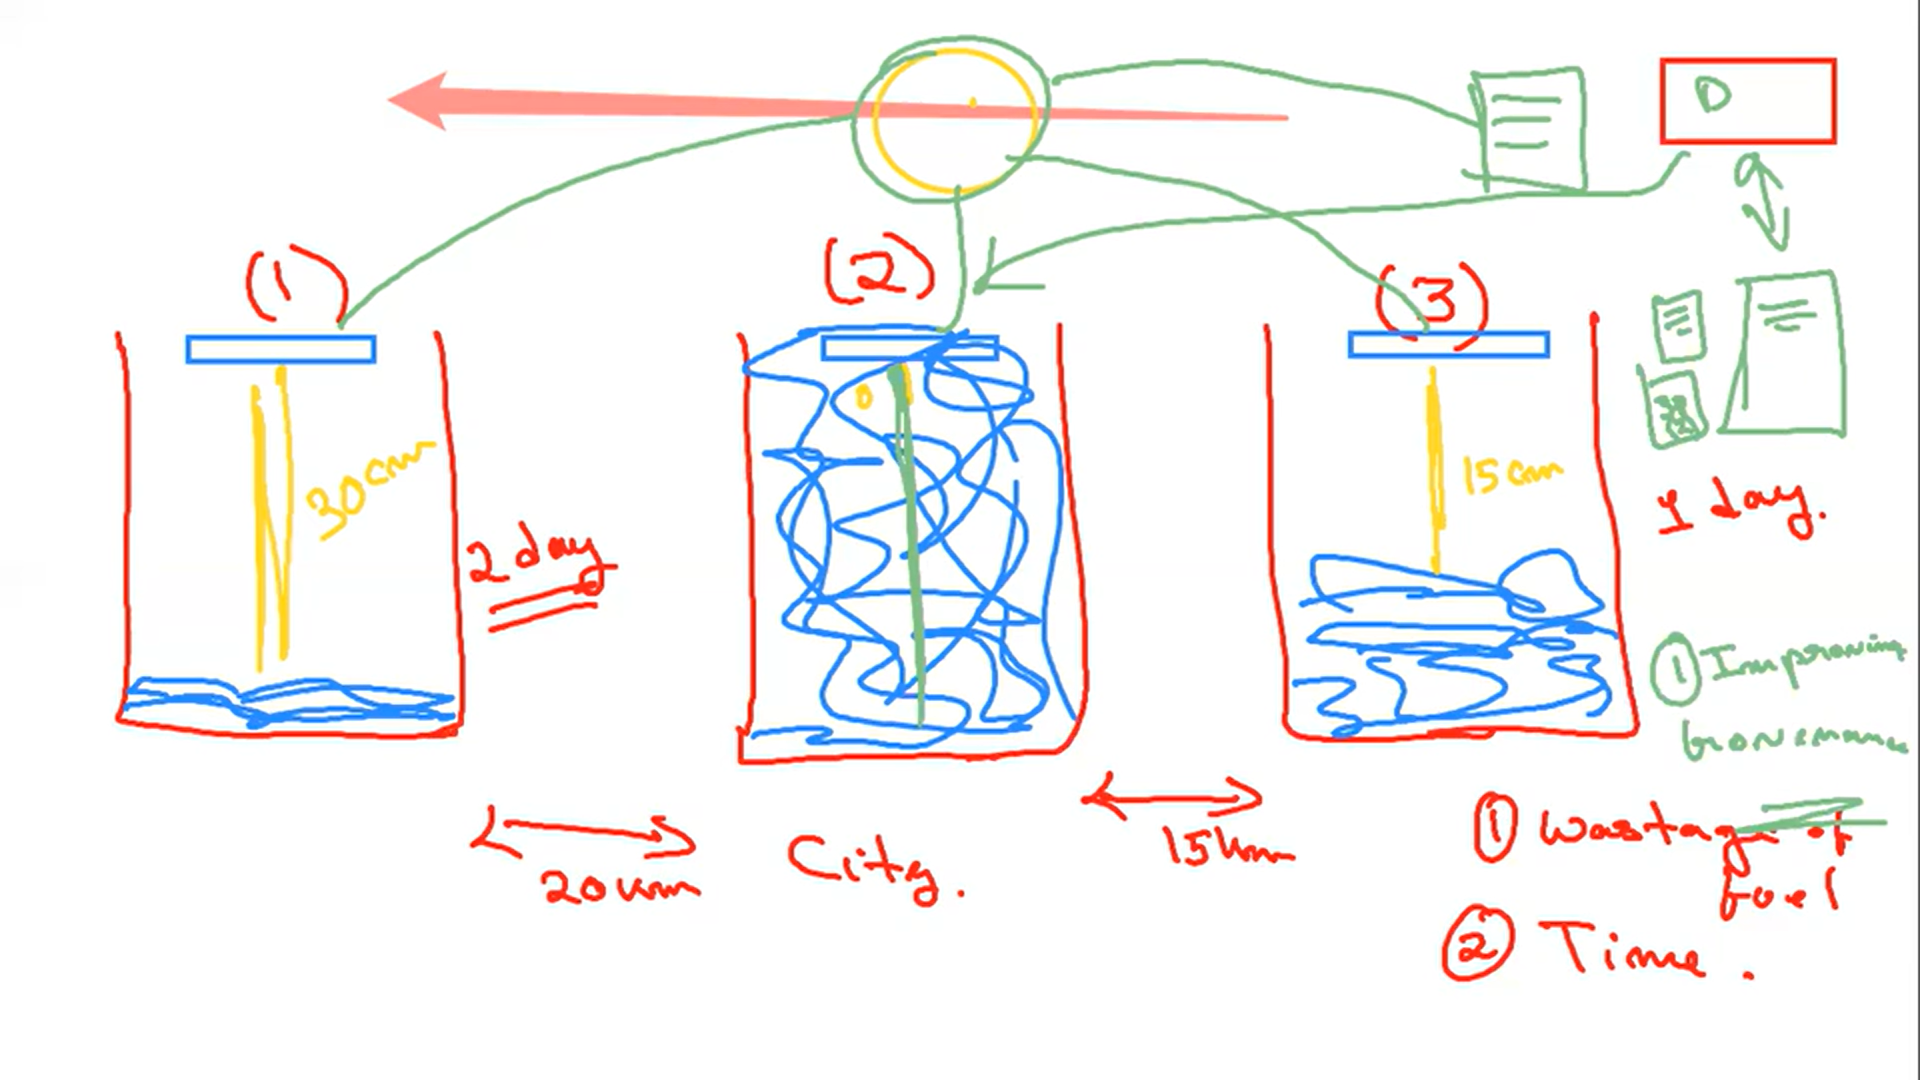 D
(1)
(2)
(3)
30cm
0
15cm
2 day
1 day.
① Improving
Governance
20km
City.
15km
① Wastage of
fuel
② Time.